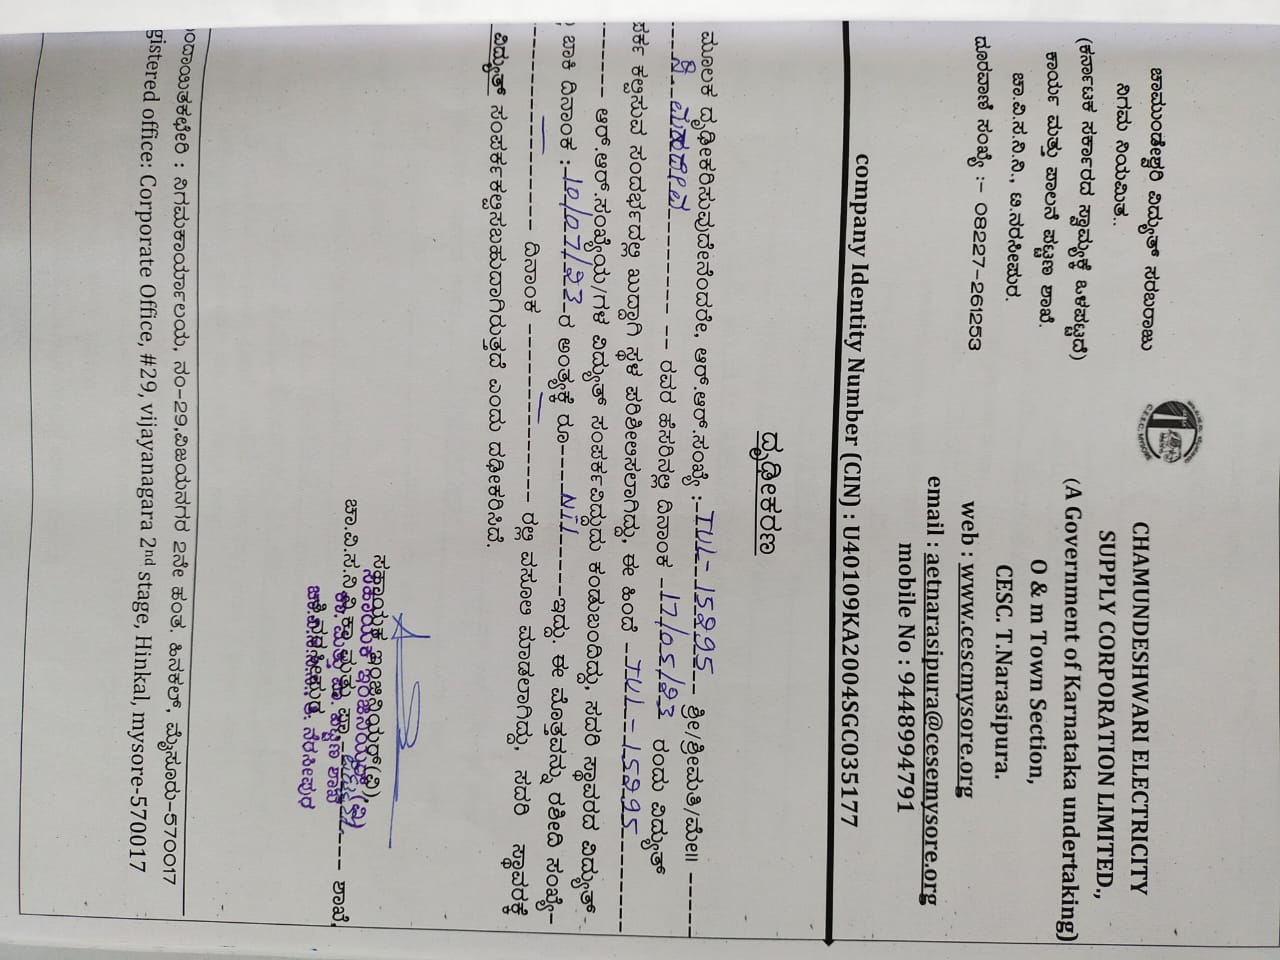 ಚಾಮುಂಡೇಶ್ವರಿ ವಿದ್ಯುತ್ ಸರಬರಾಜು
ನಿಗಮ ನಿಯಮಿತ..
(ಕರ್ನಾಟಕ ಸರ್ಕಾರದ ಸ್ವಾಮ್ಯಕ್ಕೆ ಒಳಪಟ್ಟಿದೆ)
ಕಾರ್ಯ ಮತ್ತು ಪಾಲನೆ ಪಟ್ಟಣ ಶಾಖೆ.
ಚಾ.ವಿ.ಸ.ನಿ.ನಿ., ಟಿ.ನರಸೀಪುರ.
ದೂರವಾಣಿ ಸಂಖ್ಯೆ :- 08227-261253
CHAMUNDESHWARI ELECTRICITY
SUPPLY CORPORATION LIMITED.,
(A Government of Karnataka undertaking)
O & m Town Section,
CESC. T.Narasipura.
web : www.cescmysore.org
email : aetnarasipura@cesemysore.org
mobile No : 9448994791
company Identity Number (CIN) : U40109KA2004SGC035177
ದೃಢೀಕರಣ
ಮೂಲಕ ದೃಢೀಕರಿಸುವುದೇನೆಂದರೇ, ಆರ್.ಆರ್.ಸಂಖ್ಯೆ :-TUL-15995--- ಶ್ರೀ/ಶ್ರೀಮತಿ/ಮೇ॥ ------
------ ರವರ ಹೆಸರಿನಲ್ಲಿ ದಿನಾಂಕ -17/05/23 ರಂದು ವಿದ್ಯುತ್
ಪರ್ಕ ಕಲ್ಪಿಸುವ ಸಂದರ್ಭದಲ್ಲಿ ಖುದ್ದಾಗಿ ಸ್ಥಳ ಪರಿಶೀಲಿಸಲಾಗಿದ್ದು, ಈ ಹಿಂದೆ -TUL-15995-------
-------- ಆರ್.ಆರ್.ಸಂಖ್ಯೆಯ/ಗಳ ವಿದ್ಯುತ್ ಸಂಪರ್ಕವಿದ್ದುದು ಕಂಡುಬಂದಿದ್ದು, ಸದರಿ ಸ್ಥಾವರದ ವಿದ್ಯುತ್-
ಬಾಕಿ ದಿನಾಂಕ :-10/07/23-ರ ಅಂತ್ಯಕ್ಕೆ ರೂ-----Nil------ಇದ್ದು. ಈ ಮೊತ್ತವನ್ನು ರಶೀದಿ ಸಂಖ್ಯೆ-
-------------- ದಿನಾಂಕ -------------- ರಲ್ಲಿ ವಸೂಲಿ ಮಾಡಲಾಗಿದ್ದು, ಸದರಿ ಸ್ಥಾವರಕ್ಕೆ
ವಿದ್ಯುತ್ ಸಂಪರ್ಕಕಲ್ಪಿಸಬಹುದಾಗಿರುತ್ತದೆ ಎಂದು ದಢೀಕರಿಸಿದೆ.
ಸಹಾಯಕ ಇಂಜಿನಿಯರ್(ವಿ),
ಸಹಾಯಕ ಇಂಜಿನಿಯರ್ (ವಿ)
ಚಾ.ವಿ.ಸ.ನಿ.ನಿ.ಕಾ ಮತ್ತು ಪಾ ---- ಶಾಖೆ,
ಕಾ. ಮತ್ತು ಪಾ. ಪಟ್ಟಣ ಶಾಖೆ
ಟಿ.ನರಸೀಪುರ.
ಚಾ.ವಿ.ಸ.ನಿ.ನಿ., ಟಿ. ನರಸೀಪುರ
ಂದಾಯಿತಕಛೇರಿ : ನಿಗಮಕಾರ್ಯಾಲಯ, ನಂ-29,ವಿಜಯನಗರ 2ನೇ ಹಂತ. ಹಿನಕಲ್, ಮೈಸೂರು-570017
gistered office: Corporate Office, #29, vijayanagara 2nd stage, Hinkal, mysore-570017